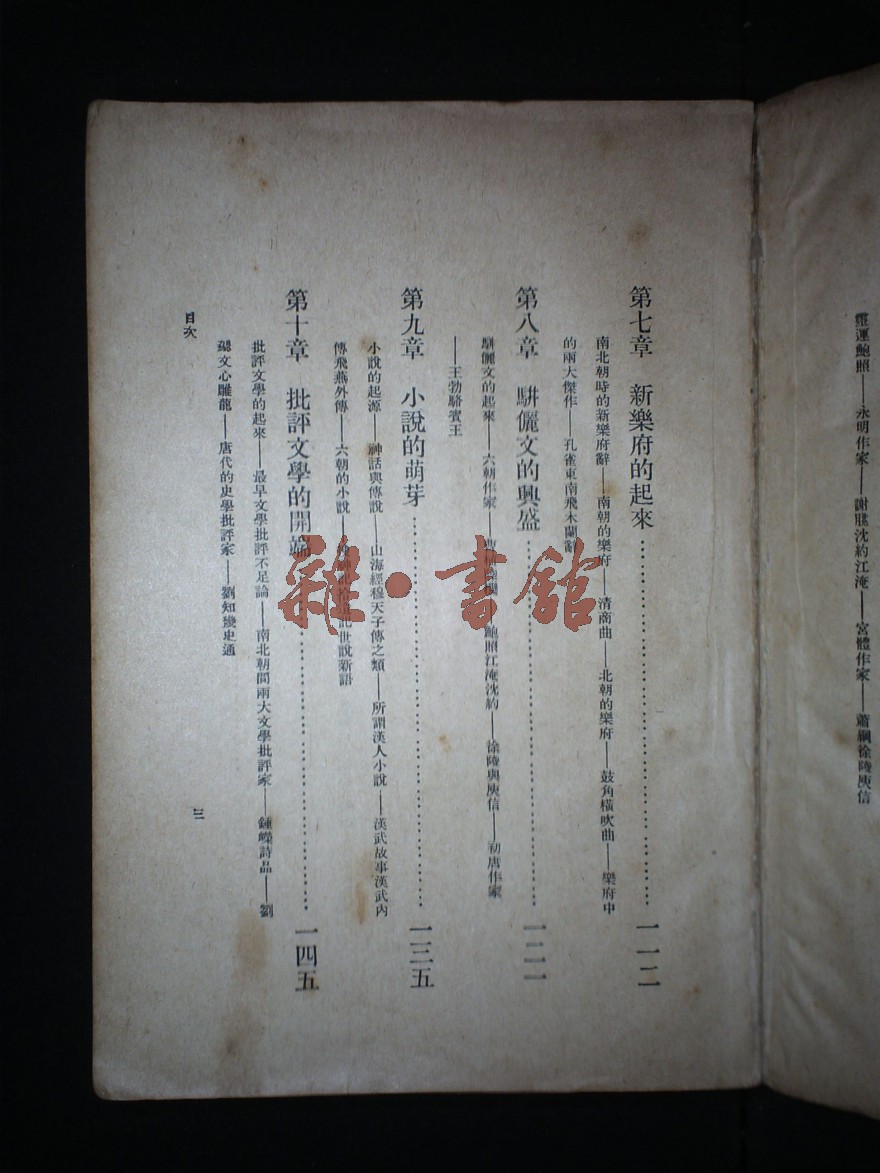 靈運鮑照——永明作家——謝朓沈約江淹——宮體作家——蕭綱徐陵庾信
第七章　新樂府的起來 一一二
南北朝時的新樂府辭——南朝的樂府——清商曲——北朝的樂府——鼓角橫吹曲——樂府中
的兩大傑作——孔雀東南飛木蘭辭
第八章　駢儷文的興盛 一二一
駢儷文的起來——六朝作家——鮑照江淹沈約——徐陵與庾信——初唐作家
——王勃駱賓王
第九章　小說的萌芽 一三五
小說的起源——神話與傳說——山海經穆天子傳之類——所謂漢人小說——漢武故事漢武內
傳飛燕外傳——六朝的小說——搜神記拾遺記世說新語
第十章　批評文學的開端 一四五
批評文學的起來——最早文學批評不足論——南北朝間兩大文學批評家——鍾嶸詩品——劉
勰文心雕龍——唐代的史學批評家——劉知幾史通
目次
三
雜·書館